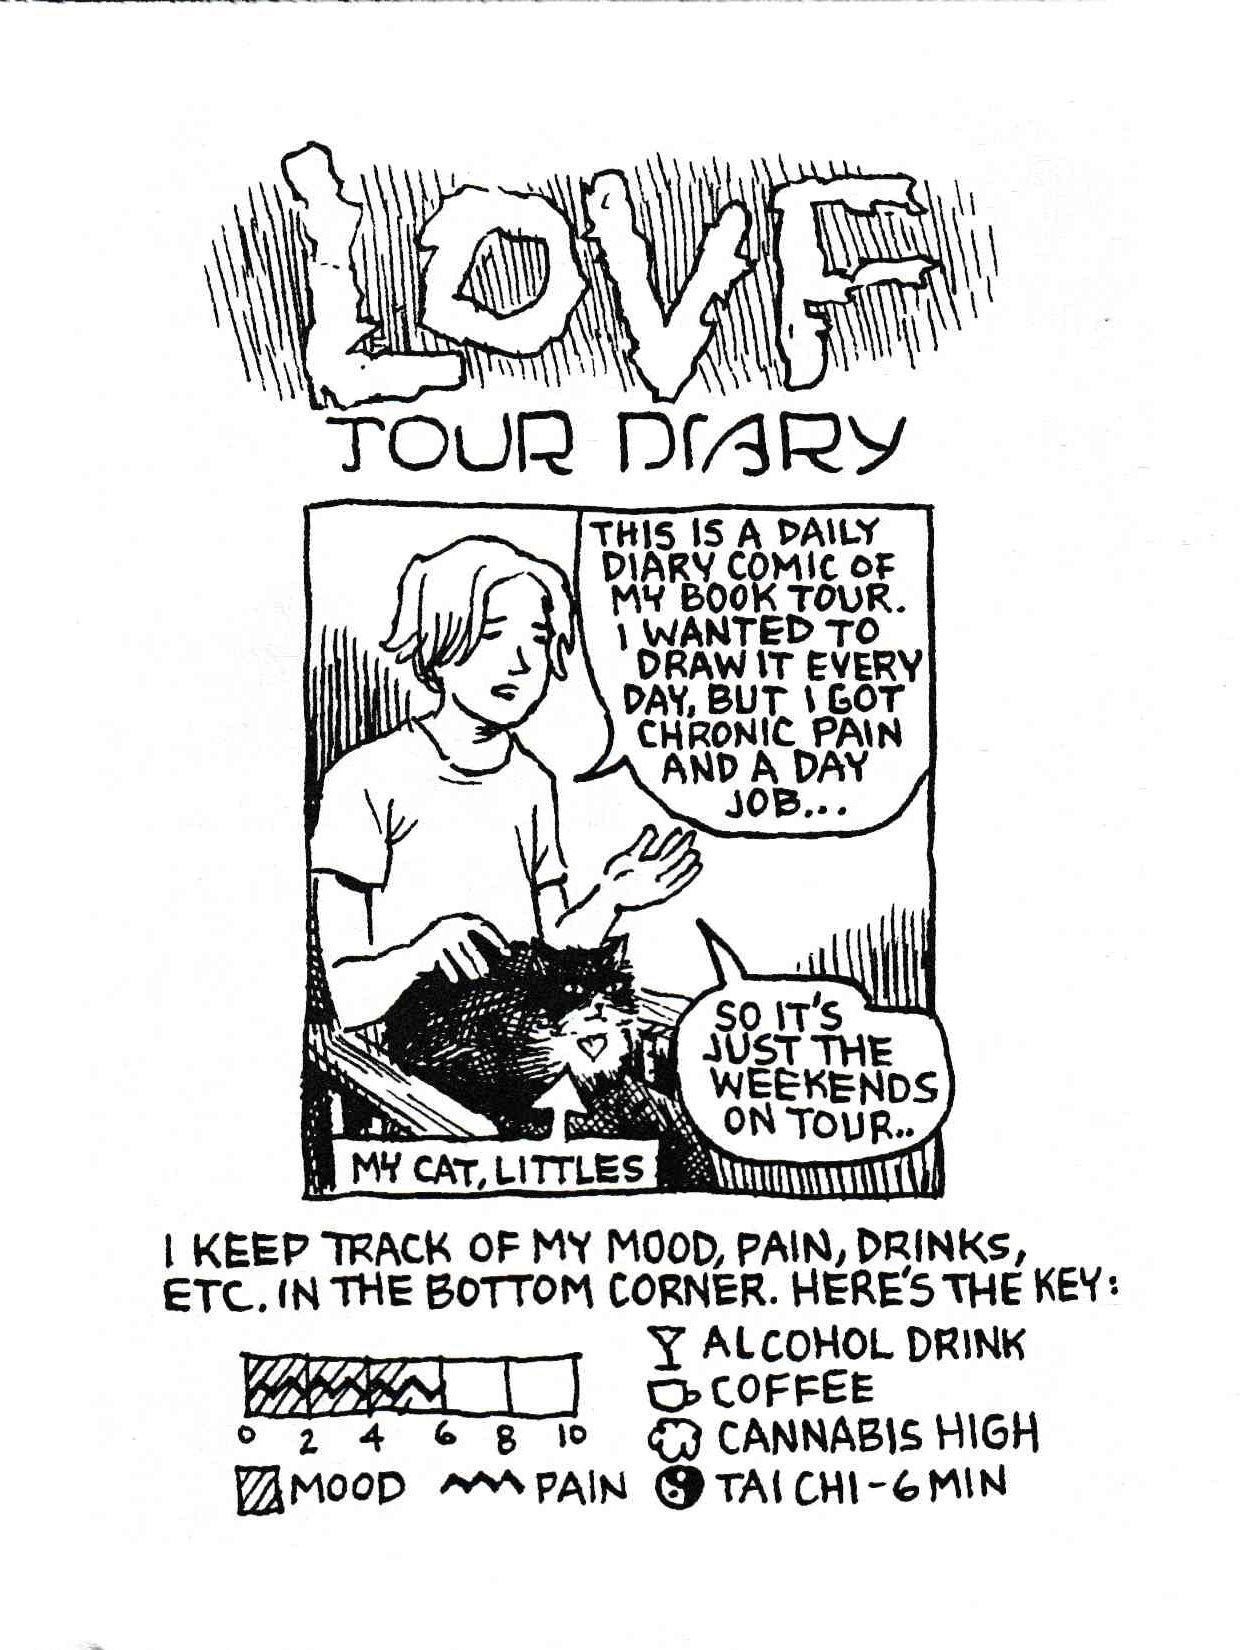 LOVE
TOUR DIARY
THIS IS A DAILY
DIARY COMIC OF
MY BOOK TOUR.
I WANTED TO
DRAW IT EVERY
DAY, BUT I GOT
CHRONIC PAIN
AND A DAY
JOB...
SO IT'S
JUST THE
WEEKENDS
ON TOUR..
MY CAT, LITTLES
I KEEP TRACK OF MY MOOD, PAIN, DRINKS,
ETC. IN THE BOTTOM CORNER. HERE'S THE KEY:
0 2 4 6 8 10
MOOD PAIN
ALCOHOL DRINK
COFFEE
CANNABIS HIGH
TAI CHI - 6 MIN